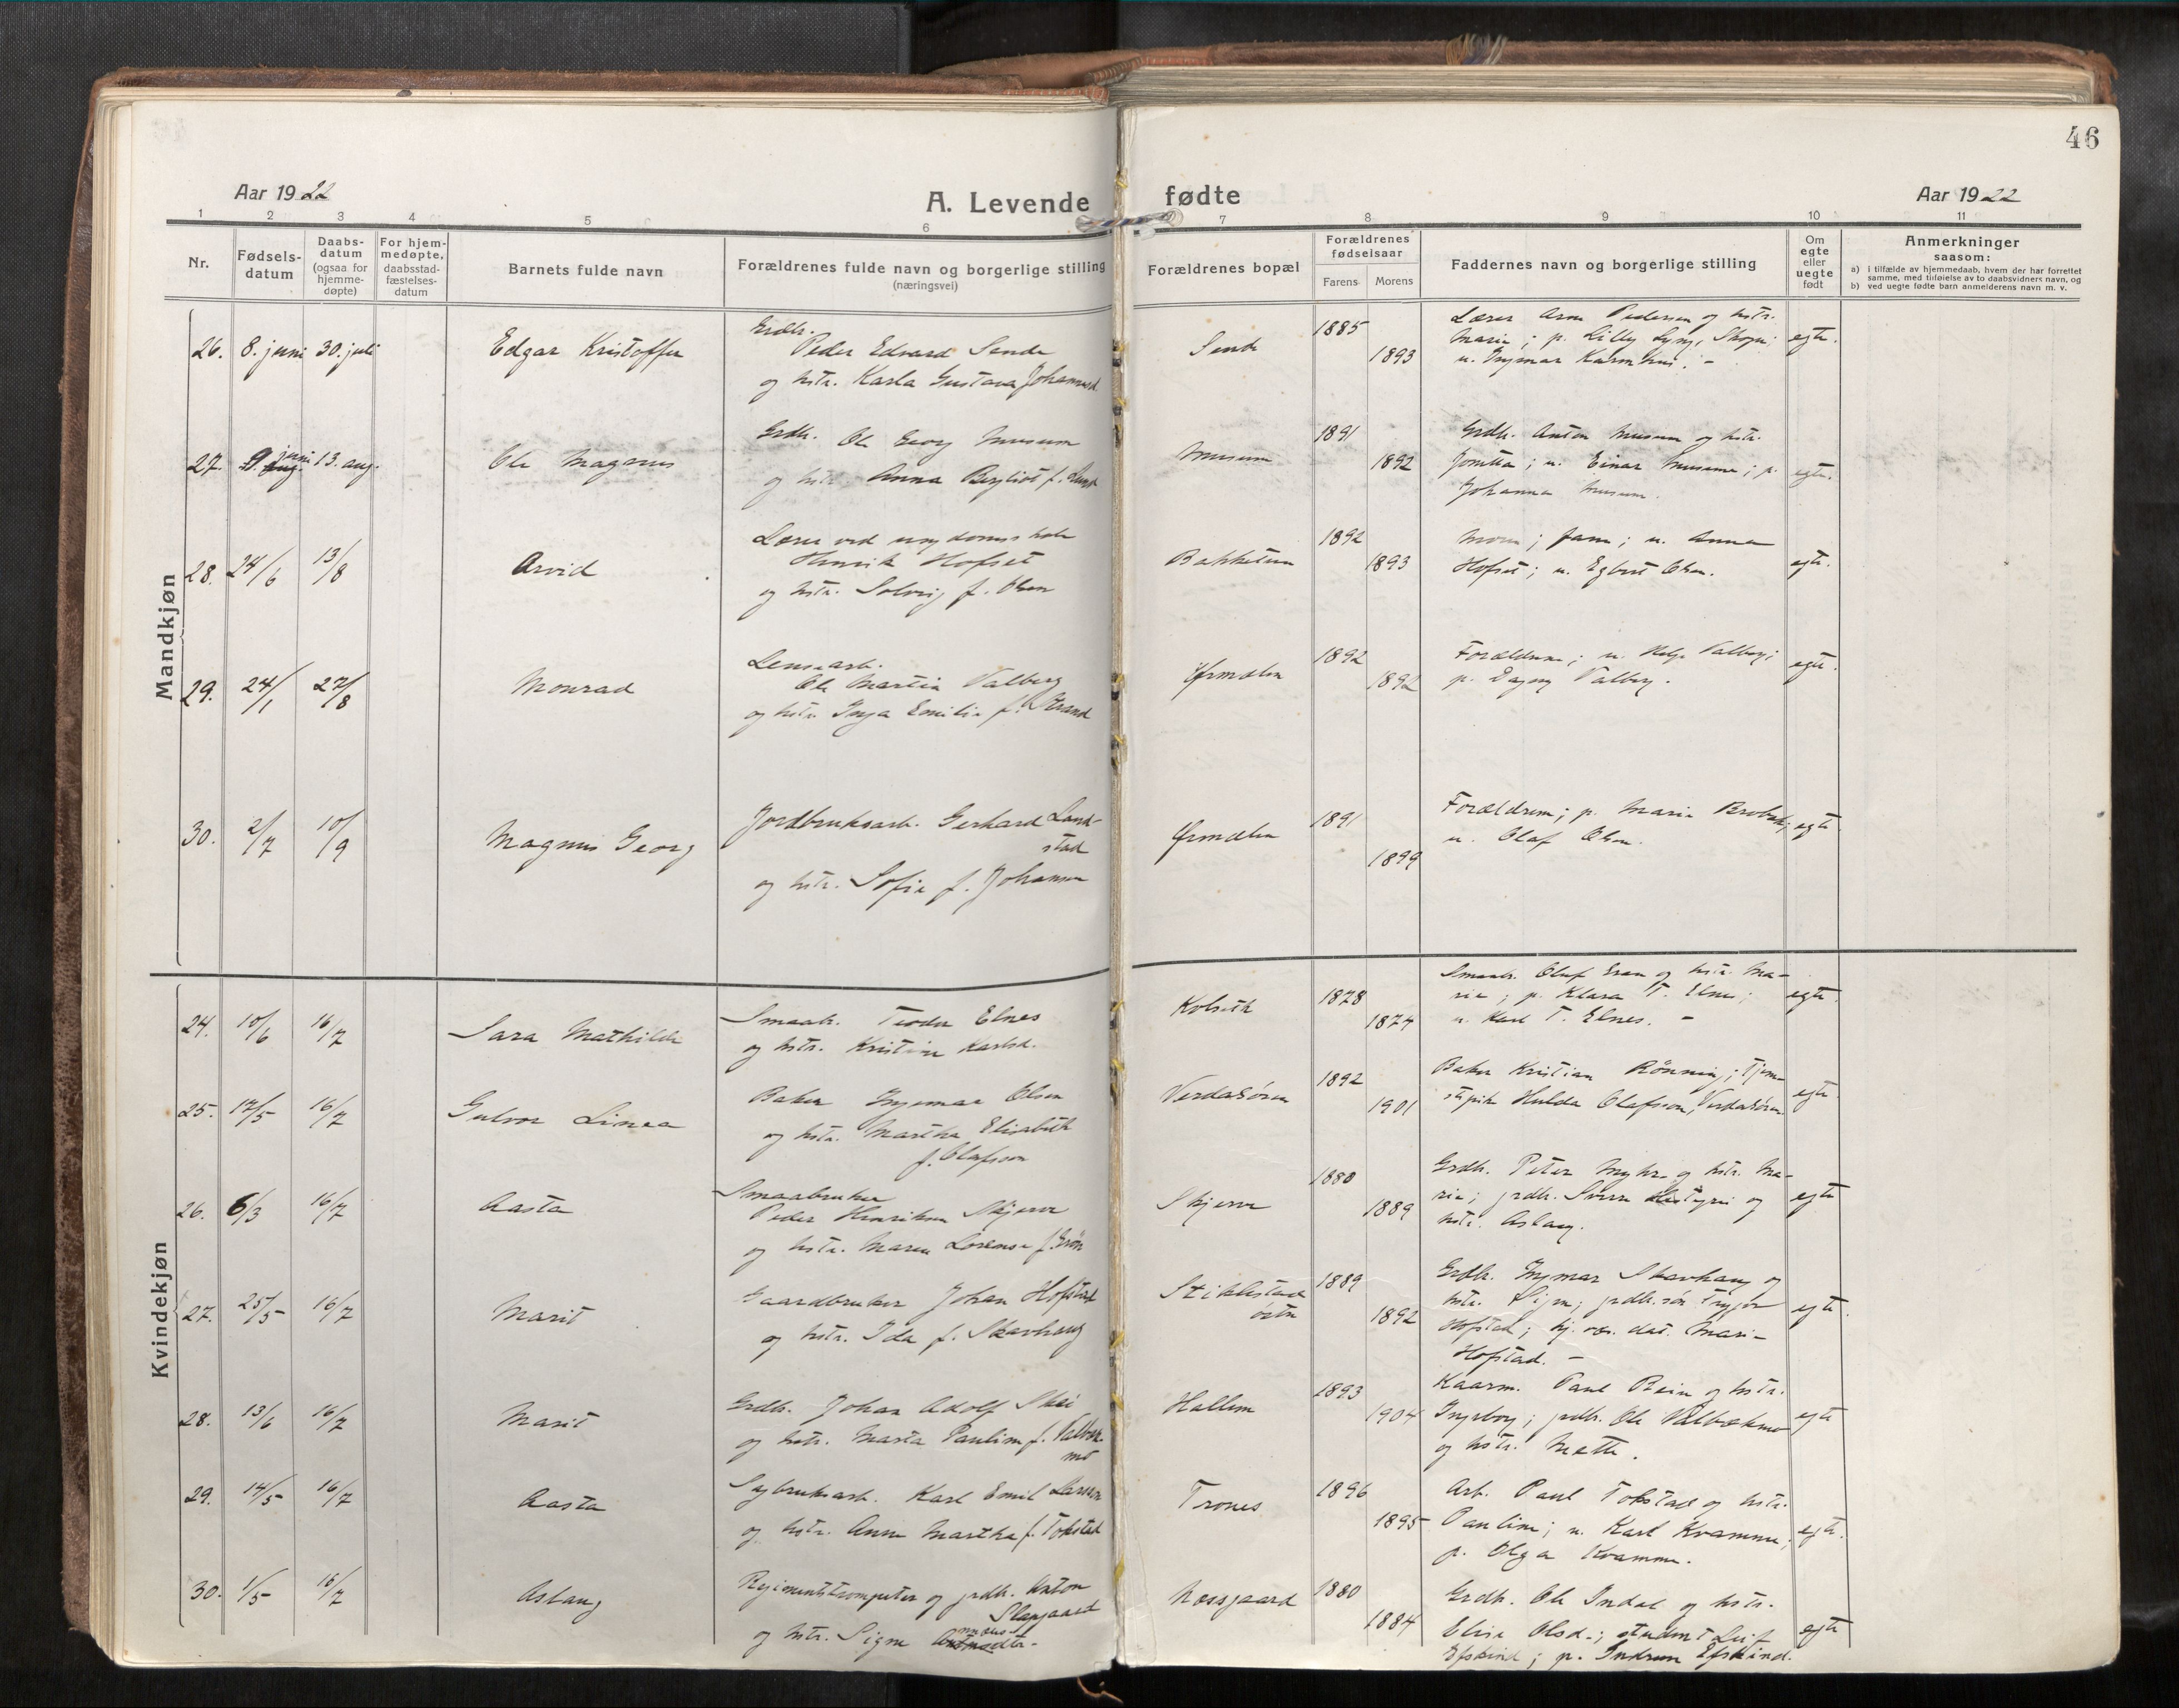 46
Aar 1922
A. Levende fødte
Aar 1922
1 2 3 4 5 6 7 8 9 10 11
Nr.
Fødsels-
datum
Daabs-
datum
(ogsaa for
hjemme-
døpte)
For hjem-
medøpte,
daabsstad-
fæstelses-
datum
Barnets fulde navn
Forældrenes fulde navn og borgerlige stilling
(næringsvei)
Forældrenes bopæl
Forældrenes
fødselsaar
Farens
Morens
Faddernes navn og borgerlige stilling
Om
egte
eller
uegte
født
Anmerkninger
saasom:
a) i tilfælde av hjemmedaab, hvem der har forrettet
samme, med tilføielse av to daabsvidners navn, og
b) ved uegte fødte barn anmelderens navn m. v.
Mandkjøn
26. 8. juni 30. juli
Edgar Kristoffer
Grdbr.
Peder Edvard Sende
og hstr. Karla Gustava Johannesd.
Sende
1885
1893
Lærer Arne Pedersen og hstr.
Marie; p. Lilly Lyng,
u. Ingmar
egte.
27. 9. juni 13. aug.
Ole Magnus
Grdbr. Ole Georg Musum
og hstr. Anna Bergliot f. Lund
Musum
1891
1892
Grdbr. Anton Musum og hstr.
u. Einar Musum; p.
Johanna Musum.
egte.
28. 24/6 13/8
Arvid
Lærer ved ungdomsskole
Henrik Hofset
og hstr. Solveig f. Olsen
Bakketun
1892
1893
Moren; faren; u. Anna
Hofset; u. Egbert Olsen.
egte.
29. 24/1 27/8
Monrad
Lensearb.
Ole Martin Valberg
og hstr. Inga Emilie f. Strand
Ørmelen
1892
1892
Forældrene; u. Helge Valberg;
p. Dagny Valberg.
egte.
30. 2/7 10/9
Magnus Georg
Jordbruksarb. Gerhard Land-
stad
og hstr. Sofie f. Johansen
Ørmelen
1891
1899
Forældrene; p. Marie
u. Olaf Olsen.
egte
Kvindekjøn
24. 10/6 16/7
Sara Mathilde
Smaabr. Teodor Elnes
og hstr. Kristine Karlsd.
Kolseth
1878
1874
Smaabr. Oluf og hstr. Ma-
rie; p. Klara T. Elnes;
u. Karl T. Elnes. –
egte.
25. 17/5 16/7
Gulvor Linea
Baker Ingemar Olsen
og hstr. Martha Elisabeth
f. Olafson
Verdalsøren
1892
1901
Baker Kristian Rönning; tjene-
stepike Hulda Olafsson, Verdalsøren
egte.
26. 6/3 16/7
Aasta
Smaabruker
Peder Henriksen Skjerve
og hstr. Maren Lorense f. Grön
Skjerve
1880
1889
Grdbr. Peter Myhre og hstr. Ma-
rie; grdbr. Sverre og
hstr. Aslaug.
egte
27. 25/5 16/7
Marit
Gaardbruker Johan Hofstad
og hstr. Ida f. Skavhaug
Stiklestad
östre
1889
1892
Grdbr. Ingmar Skavhaug og
hstr. Signe; grdbr.søn Trygve
Hofstad; hj. vær. dat. Marie
Hofstad. –
egte.
28. 13/6 16/7
Marit
Grdbr. Johan Adolf Skei
og hstr. Marta Pauline f. Valbæk-
mo
Hallem
1893
1904
Kaarm. Paul Rein og hstr.
Ingeborg; grdbr. Ole Valbækmo
og hstr. Mette.
egte
29. 14/5 16/7
Aasta
Sagbruksarb. Karl Emil Larsen
og hstr. Anna Martha f. Tokstad
Trones
1896
1895
Arb. Paul Tokstad og hstr.
Pauline; u. Karl Kvamme;
p. Olga Kvamme.
egte.
30. 1/5 16/7
Aslaug
Regimentstrompeter og grdbr. Anton
Slapgaard
og hstr. Signe
Næssgaard
1880
1884
Grdbr. Ole Indal og hstr.
Elise Olsd.; student Leif
Efskind; p. Efskind.
egte